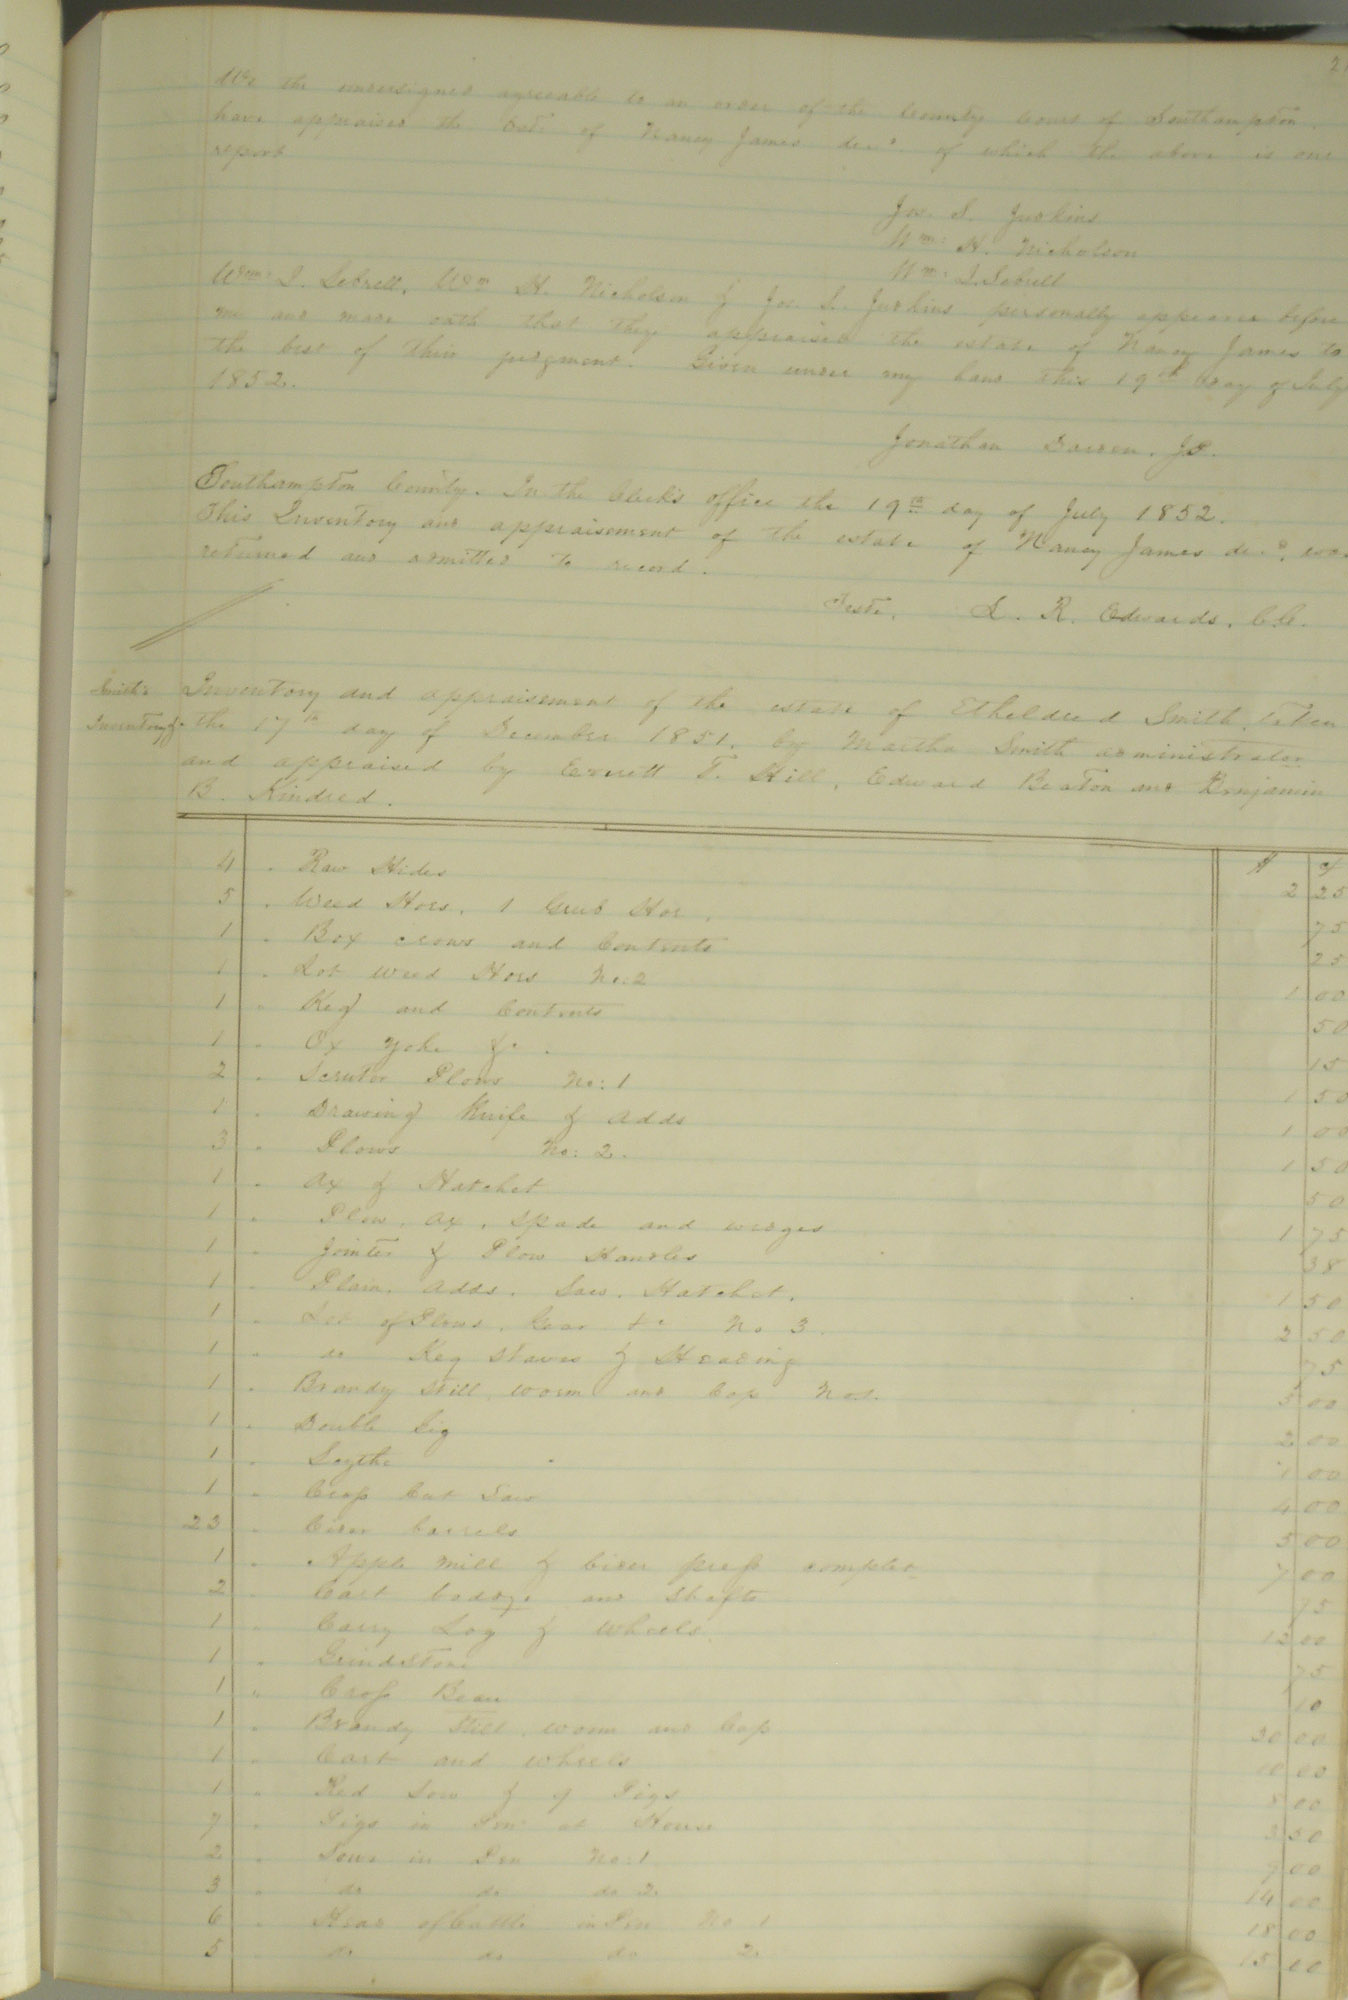 We the undersigned agreeable to an order of the County Court of Southampton
have appraised the Este of Nancy James decd. of which the above is our
report
Jos. S. Judkins
Wm: H. Nicholson
Wm: J. Sebrell
Wm: J. Sebrell, Wm H. Nicholson & Jos. S. Judkins personally appeared before
me and made oath that they appraised the estate of Nancy James to
the best of their judgment. Given under my hand this 19th day of July
1852.
Jonathan Darden, J.P.
Southampton County. In the Clerk's office the 19th day of July 1852.
This Inventory and appraisement of the estate of Nancy James decd. was
returned and admitted to record.
Teste, L. R. Edwards, C.C.
Smith's
Inventory &c
Inventory and appraisement of the estate of Etheldred Smith taken
the 17th day of December 1851, by Martha Smith administrator
and appraised by Everett T. Hill, Edward Beaton and Benjamin
B. Kindred.
$ c
4 . Raw Hides 2 25
5 . Weed Hoes, 1 Grub Hoe, 75
1 . Box and Contents 25
1 . Lot weed Hoes No. 2 1 00
1 " Keg and Contents 50
1 " Ox Yoke &c. 15
2 . Plows No: 1 1 50
1 . Drawing Knife & adds 1 00
3 " Plows No: 2. 1 50
1 . Ax & Hatchet 50
1 " Plow, ax, spade and wedges 1 75
1 " Jointer & Plow Handles 38
1 " Plain, adds, Saw, Hatchet, 1 50
1 " Lot of Plows, Gear &c No 3. 2 50
1 " do Keg Staves & Heading 75
1 . Brandy Still, worm and Cap No 1. 00
1 . Double 2 00
1 . Scythe 1 00
1 " Cross Cut Saw 4 00
23 " Cider barrels 5 00
1 . Apple mill & Cider press complete 7 00
2 . Cart and shafts 75
1 " Carry Log & Wheels. 12 00
1 . Grindstone 75
1 " Cross Beam 10
1 . Brandy Still, worm and Cap 30 00
1 . Cart and wheels 10 00
1 " Red Sow & 9 Pigs 8 00
7 . Pigs in Pen at House 3 50
2 . Sows in Pen No: 1 9 00
3 " do do do 2. 14 00
6 " Head of Cattle in Pen No 1 18 00
5 " do do do 2. 15 00